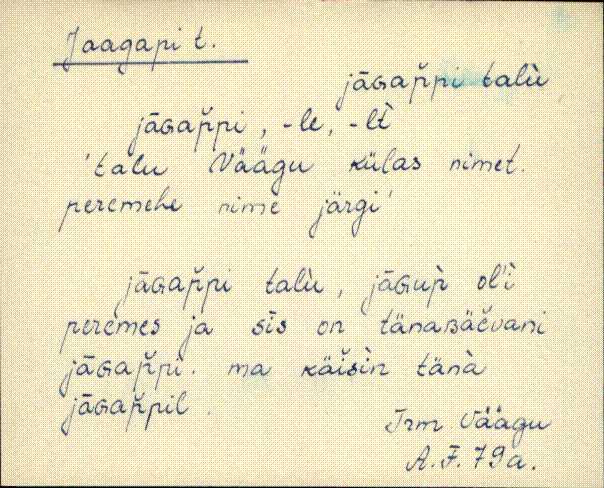 Jaagapi t.
jāɢap̆pi talù
jāɢap̆pi, -le, -lt̀
'talu Väägu külas nimet.
peremehe nime järgi'
jāɢap̆pi talù, jāɢup̀ ol'ì
peremes ja sīs on tänaʙäĕvani
jāɢap̆pi. ma käĭsìn tänà
jāɢap̆pil.
Trm Väägu
A.F. 79a.